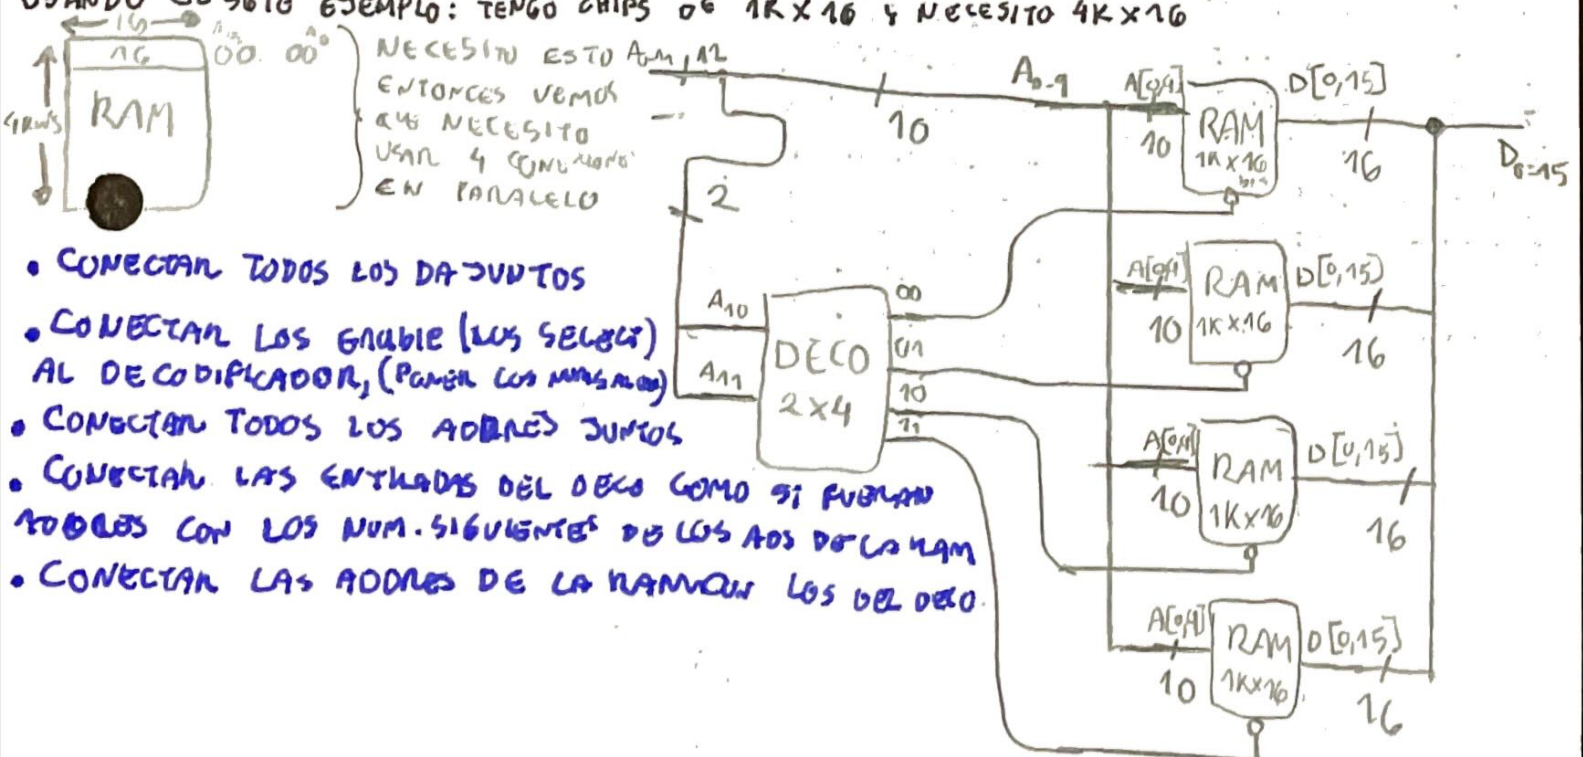 EJEMPLO: TENGO CHIPS DE 1K X 16 Y NECESITO 4K X 16
16
16
RAM
NECESITO ESTO
ENTONCES VEMOS
QUE NECESITO
USAR 4
EN PARALELO
12
10
A0-9
2
• CONECTAR TODOS LOS DATA JUNTOS
• CONECTAR LOS ENABLE (LOS SELECT)
AL DECODIFICADOR, (PONER LOS
• CONECTAR TODOS LOS ADDRES JUNTOS
• CONECTAR LAS ENTRADAS DEL DECO COMO SI FUERAN
ADDRES CON LOS NUM. SIGUIENTES DE LOS ADS DE LA RAM
• CONECTAR LAS ADDRES DE LA RAM CON LOS DEL DECO
A10
A11
DECO
2X4
00
01
10
11
A[0,9]
10
RAM
1K X 16
bits
D[0,15]
16
D0-15
A[0,9]
10
RAM
1K X 16
D[0,15]
16
A[0,9]
10
RAM
1K X 16
D[0,15]
16
A[0,9]
10
RAM
1K X 16
D[0,15]
16